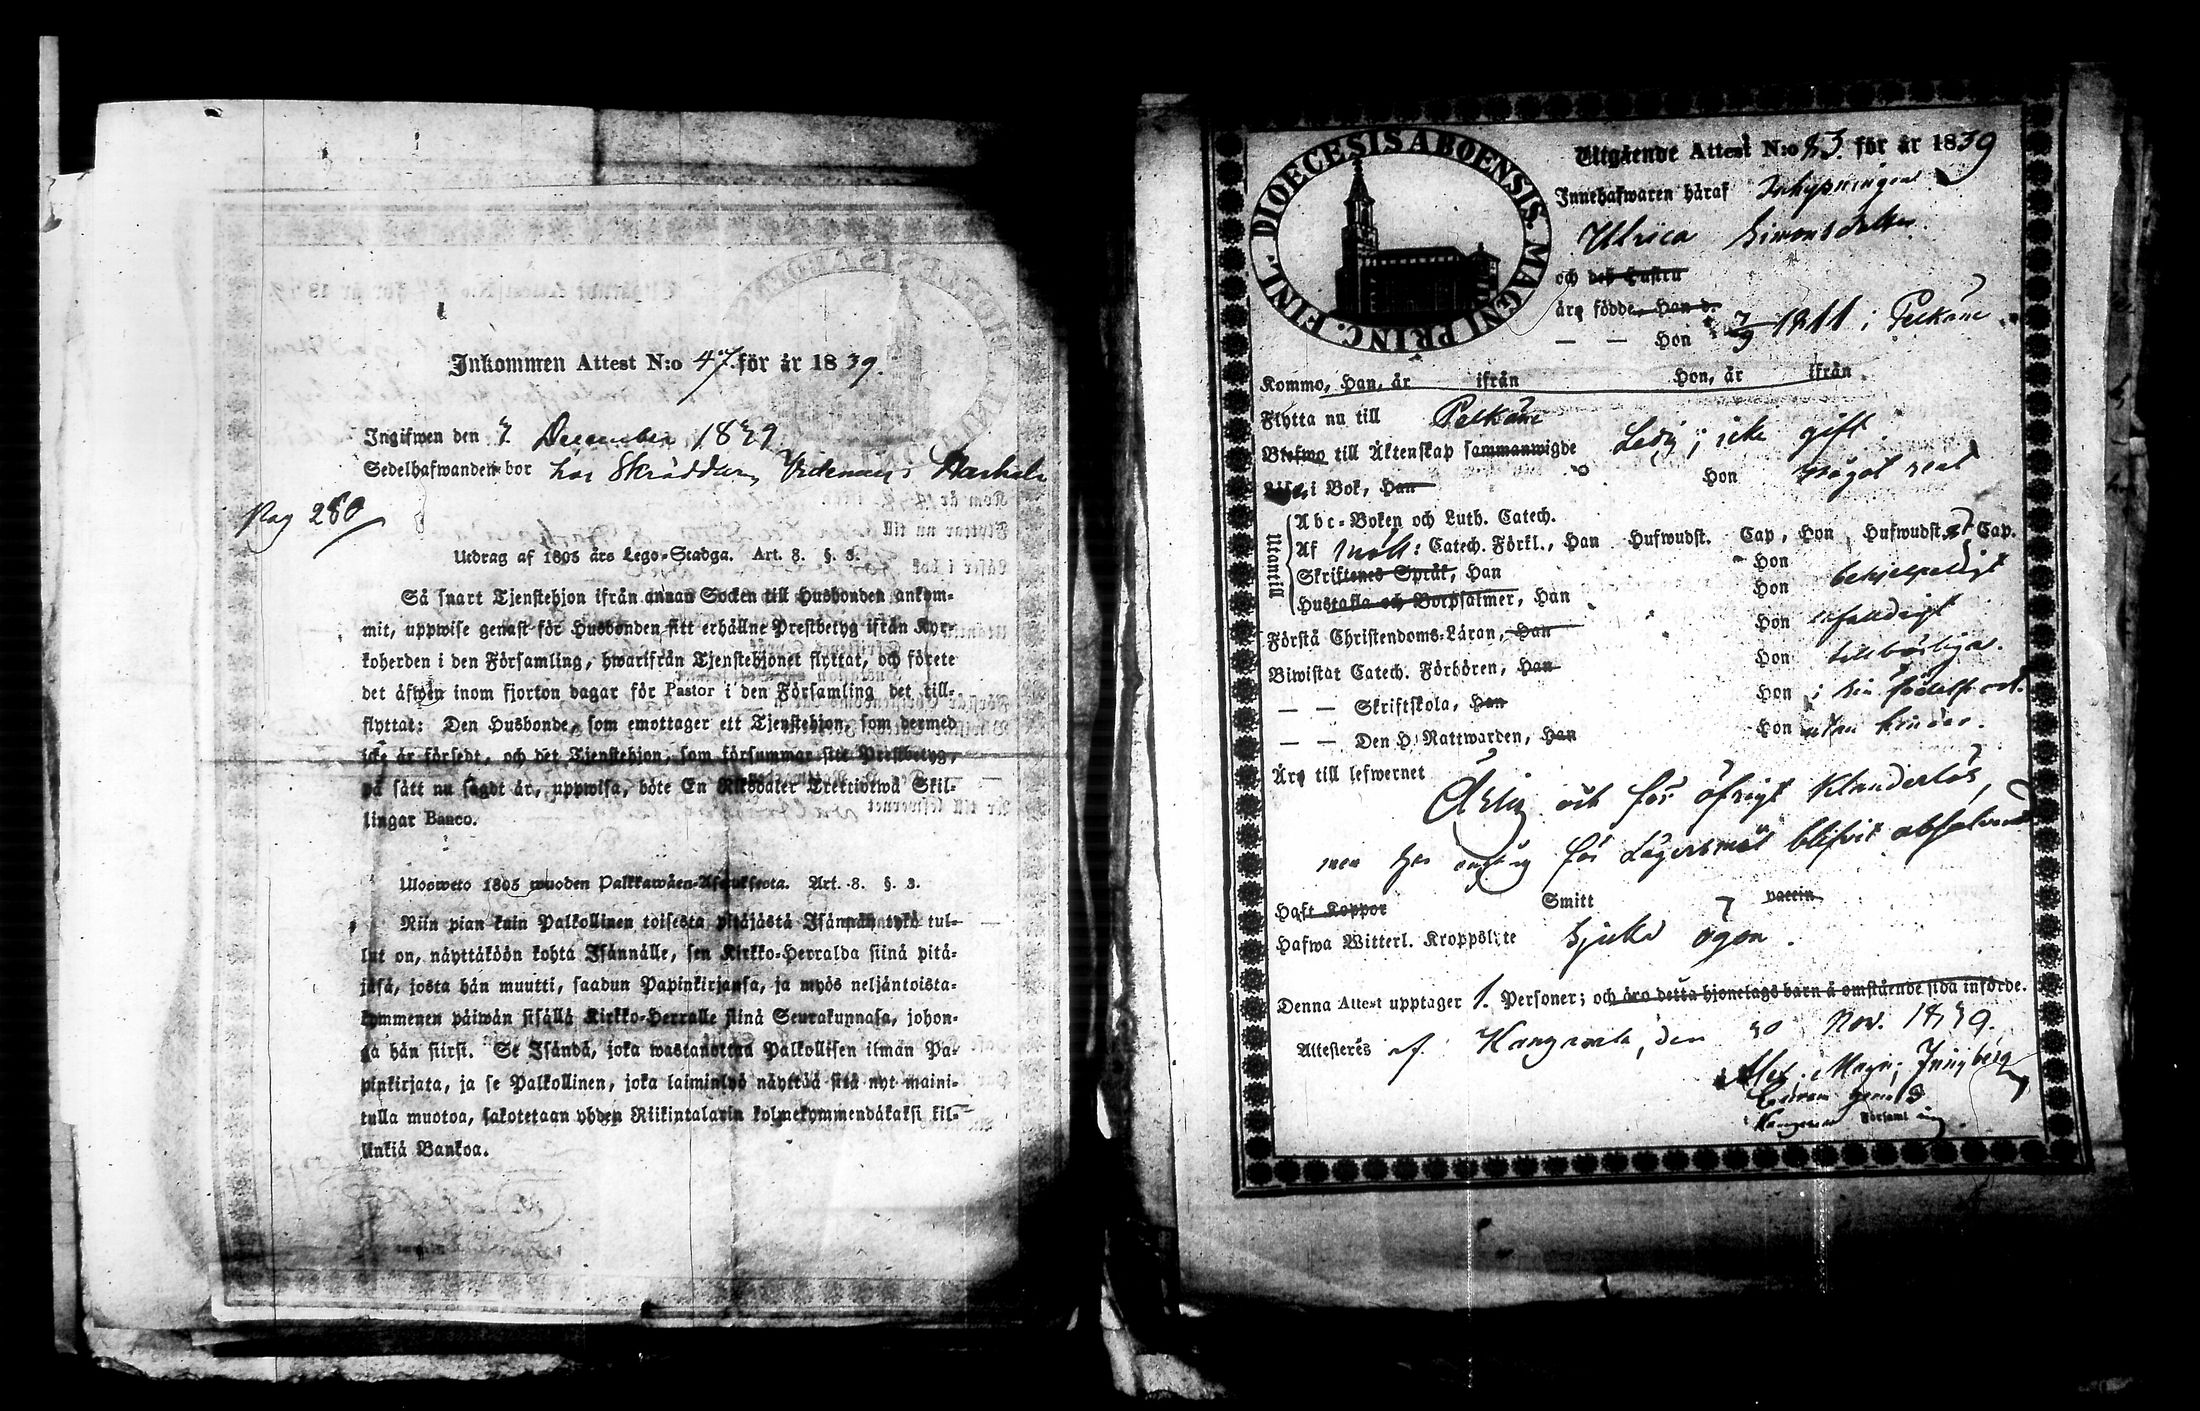 Inkommen Attest N:o 47. för år 1839.
Ingifwen den 7 December 1839
Sedelhafwanden bor hos Skräddaren
Pag 280
Utdrag af 1805 års Lego-Stadga. Art. 8. §. 3.
Så snart Tjenstehjon ifrån annan Socken till Husbonden ankom-
mit, uppwise genast för Husbonden sitt erhållne Prestbetyg ifrån Kyr-
koherden i den Församling, hwarifrån Tjenstehjonet flyttat, och förete
det äfwen inom fjorton dagar för Pastor i den Församling det till-
flyttat: Den Husbonde, som emottager ett Tjenstehjon, som dermed
icke är försedt, och det Tjenstehjon, som försummar sitt Prestbetyg,
på sätt nu sagdt är, uppwisa, böte En Riksdaler Trettiotwå Skil-
lingar Banco.
Ulosweto 1805 wuoden Palkkawäen-Asetuksesta. Art. 8. §. 3.
Niin pian kuin Palkollinen toisesta pitäjästä Isännän tykö tul-
lut on, näyttäköön kohta Isännälle, sen Kirkko-Herralda siinä pitä-
jäsä, josta hän muutti, saadun Papinkirjansa, ja myös neljäntoista-
kymmenen päiwän sisällä Kirkko-Herralle siinä Seurakunnasa, johon-
ga hän siirsi. Se Isändä, joka wastanottaa Palkollisen ilman Pa-
pinkirjata, ja se Palkollinen, joka laiminlyö näyttää sitä nyt maini-
tulla muotoa, sakotetaan yhden Riikintalarin kolmekymmendäkaksi kil-
linkiä Bankoa.
DIOECESIS ABOENSIS. MAGNI PRINC. FINL.
Utgående Attest N:o 83. för år 1839
Innehafwaren häraf Inhysningen
Ulrica Simonsdotter
och des Hustru
äro födde, Han d.
— — Hon 7/9 1811 i Pelkäne
Kommo, Han, år ifrån Hon, år ifrån
Flytta nu till Pelkäne
Blefwo till Äktenskap sammanwigde Ledig; icke gift
Läse i Bok, Han Hon något rent
Utantill
Abc-Boken och Luth. Catech.
Af Catech. Förkl., Han Hufwudst. Cap, Hon Hufwudst. Cap.
Skriftenes Språk, Han Hon
Hustafla och Botpsalmer, Han Hon behjelpeligt
Förstå Christendoms-Läran, Han Hon enfaldigt
Biwistat Catech. Förhören, Han Hon tillbörligen.
— — Skriftskola, Han Hon i sin födelse ort.
— — Den H. Nattwarden, Han Hon utan hinder.
Äro till lefwernet
Ärlig och för öfrigt klanderlös,
men har för Lägersmål blifvit absolverad
Haft Koppor Smitt vaccin
Hafwa Witterl. Kroppslyte Sjuka ögon.
Denna Attest upptager 1. Personer; och äro detta hjonelags barn å omstående sida införde.
Attesteres af Kangasala, den 30 Nov. 1839.
Församling